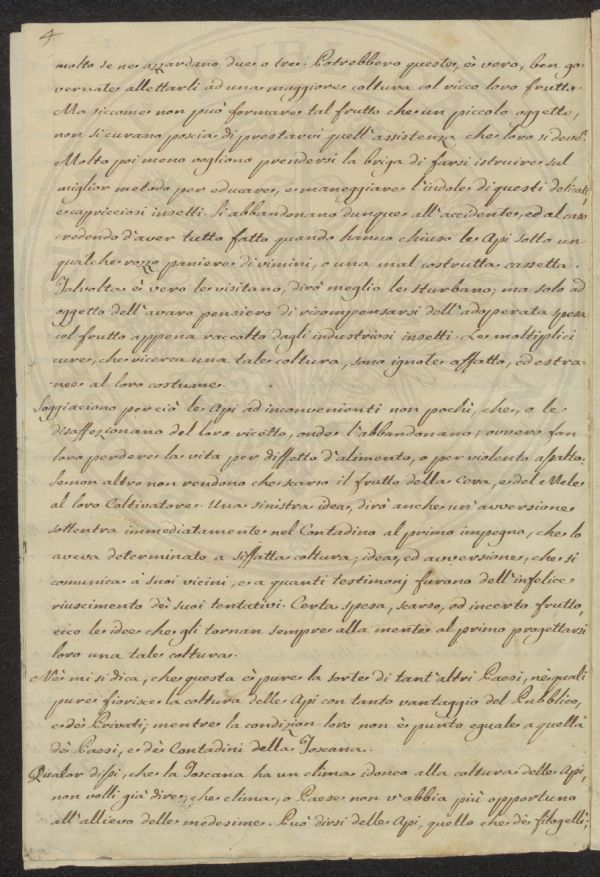 4
molto se ne azzardano due o tre. Potrebbero queste, è vero, ben go-
vernate allettarli ad una maggiore coltura col ricco loro frutto.
Ma siccome non può formare tal frutto che un piccolo oggetto,
non si curano poscia di prestarvi quell'assistenza che loro si deve.
Molto poi meno vogliono prendersi la briga di farsi istruire sul
miglior metodo per educare, e maneggiare l'indole di questi delicati,
e capricciosi insetti. Si abbandonano dunque all'accidente, ed al caso
credendo d'aver tutto fatto quando hanno chiuso le Api sotto un
qualche rozzo paniere di vimini, o una mal costrutta cassetta.
Talvolta è vero le visitano, dirò meglio le sturbano; ma solo ad
oggetto dell'avaro pensiero di ricompensarsi dell'adoperata spesa
col frutto appena raccolto dagli industriosi insetti. Le moltiplici
cure, che ricerca una tale coltura, sono ignote affatto, ed estra-
nee al loro costume.
Soggiaciono perciò le Api ad inconvenienti non pochi, che, o le
disaffezionano del loro ricetto, onde l'abbandonano; ovvero fan
loro perdere la vita per diffetto d'alimento, o per violento assalto.
Se non altro non rendono che scarso il frutto della Cera, e del Mele
al loro Coltivatore. Una sinistra idea, dirò anche un'avversione
sottentra immediatamente nel Contadino al primo impegno, che lo
aveva determinato a siffatta coltura; idea, ed avversione, che si
comunica à suoi vicini, e a quanti testimonj furono dell'infelice
riuscimento dè suoi tentativi. Certa spesa, scarso, ed incerto frutto,
ecco le idee che gli tornan sempre alla mente al primo progettarsi
loro una tale coltura.
Nè mi si dica, che questa è pure la sorte di tant'altri Paesi, nè quali
pure fiorisce la coltura delle Api con tanto vantaggio del Pubblico,
e dè Privati; mentre la condizion loro non è punto eguale a quella
dè Paesi, e dè Contadini della Toscana.
Qualor dissi, che la Toscana ha un clima idoneo alla coltura delle Api,
non volli già dire, che clima, o Paese non v'abbia più opportuno
all'allievo delle medesime. Può dirsi delle Api, quello che dè filogelli;